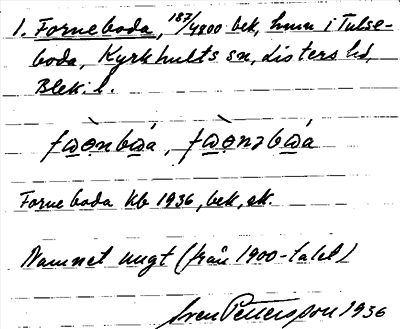 1. Forneboda, 187/4800 bek, hmn i Tulse-
boda, Kyrkhults sn, Listers hd,
Blek. l.
fɷ̀ɵ̣nbɷ́a, fɷ̀ɵnəbɷ́a
Forneboda Kb 1936, bek, ek.
Namnet ungt (från 1900-talet)
Sven Pettersson 1936